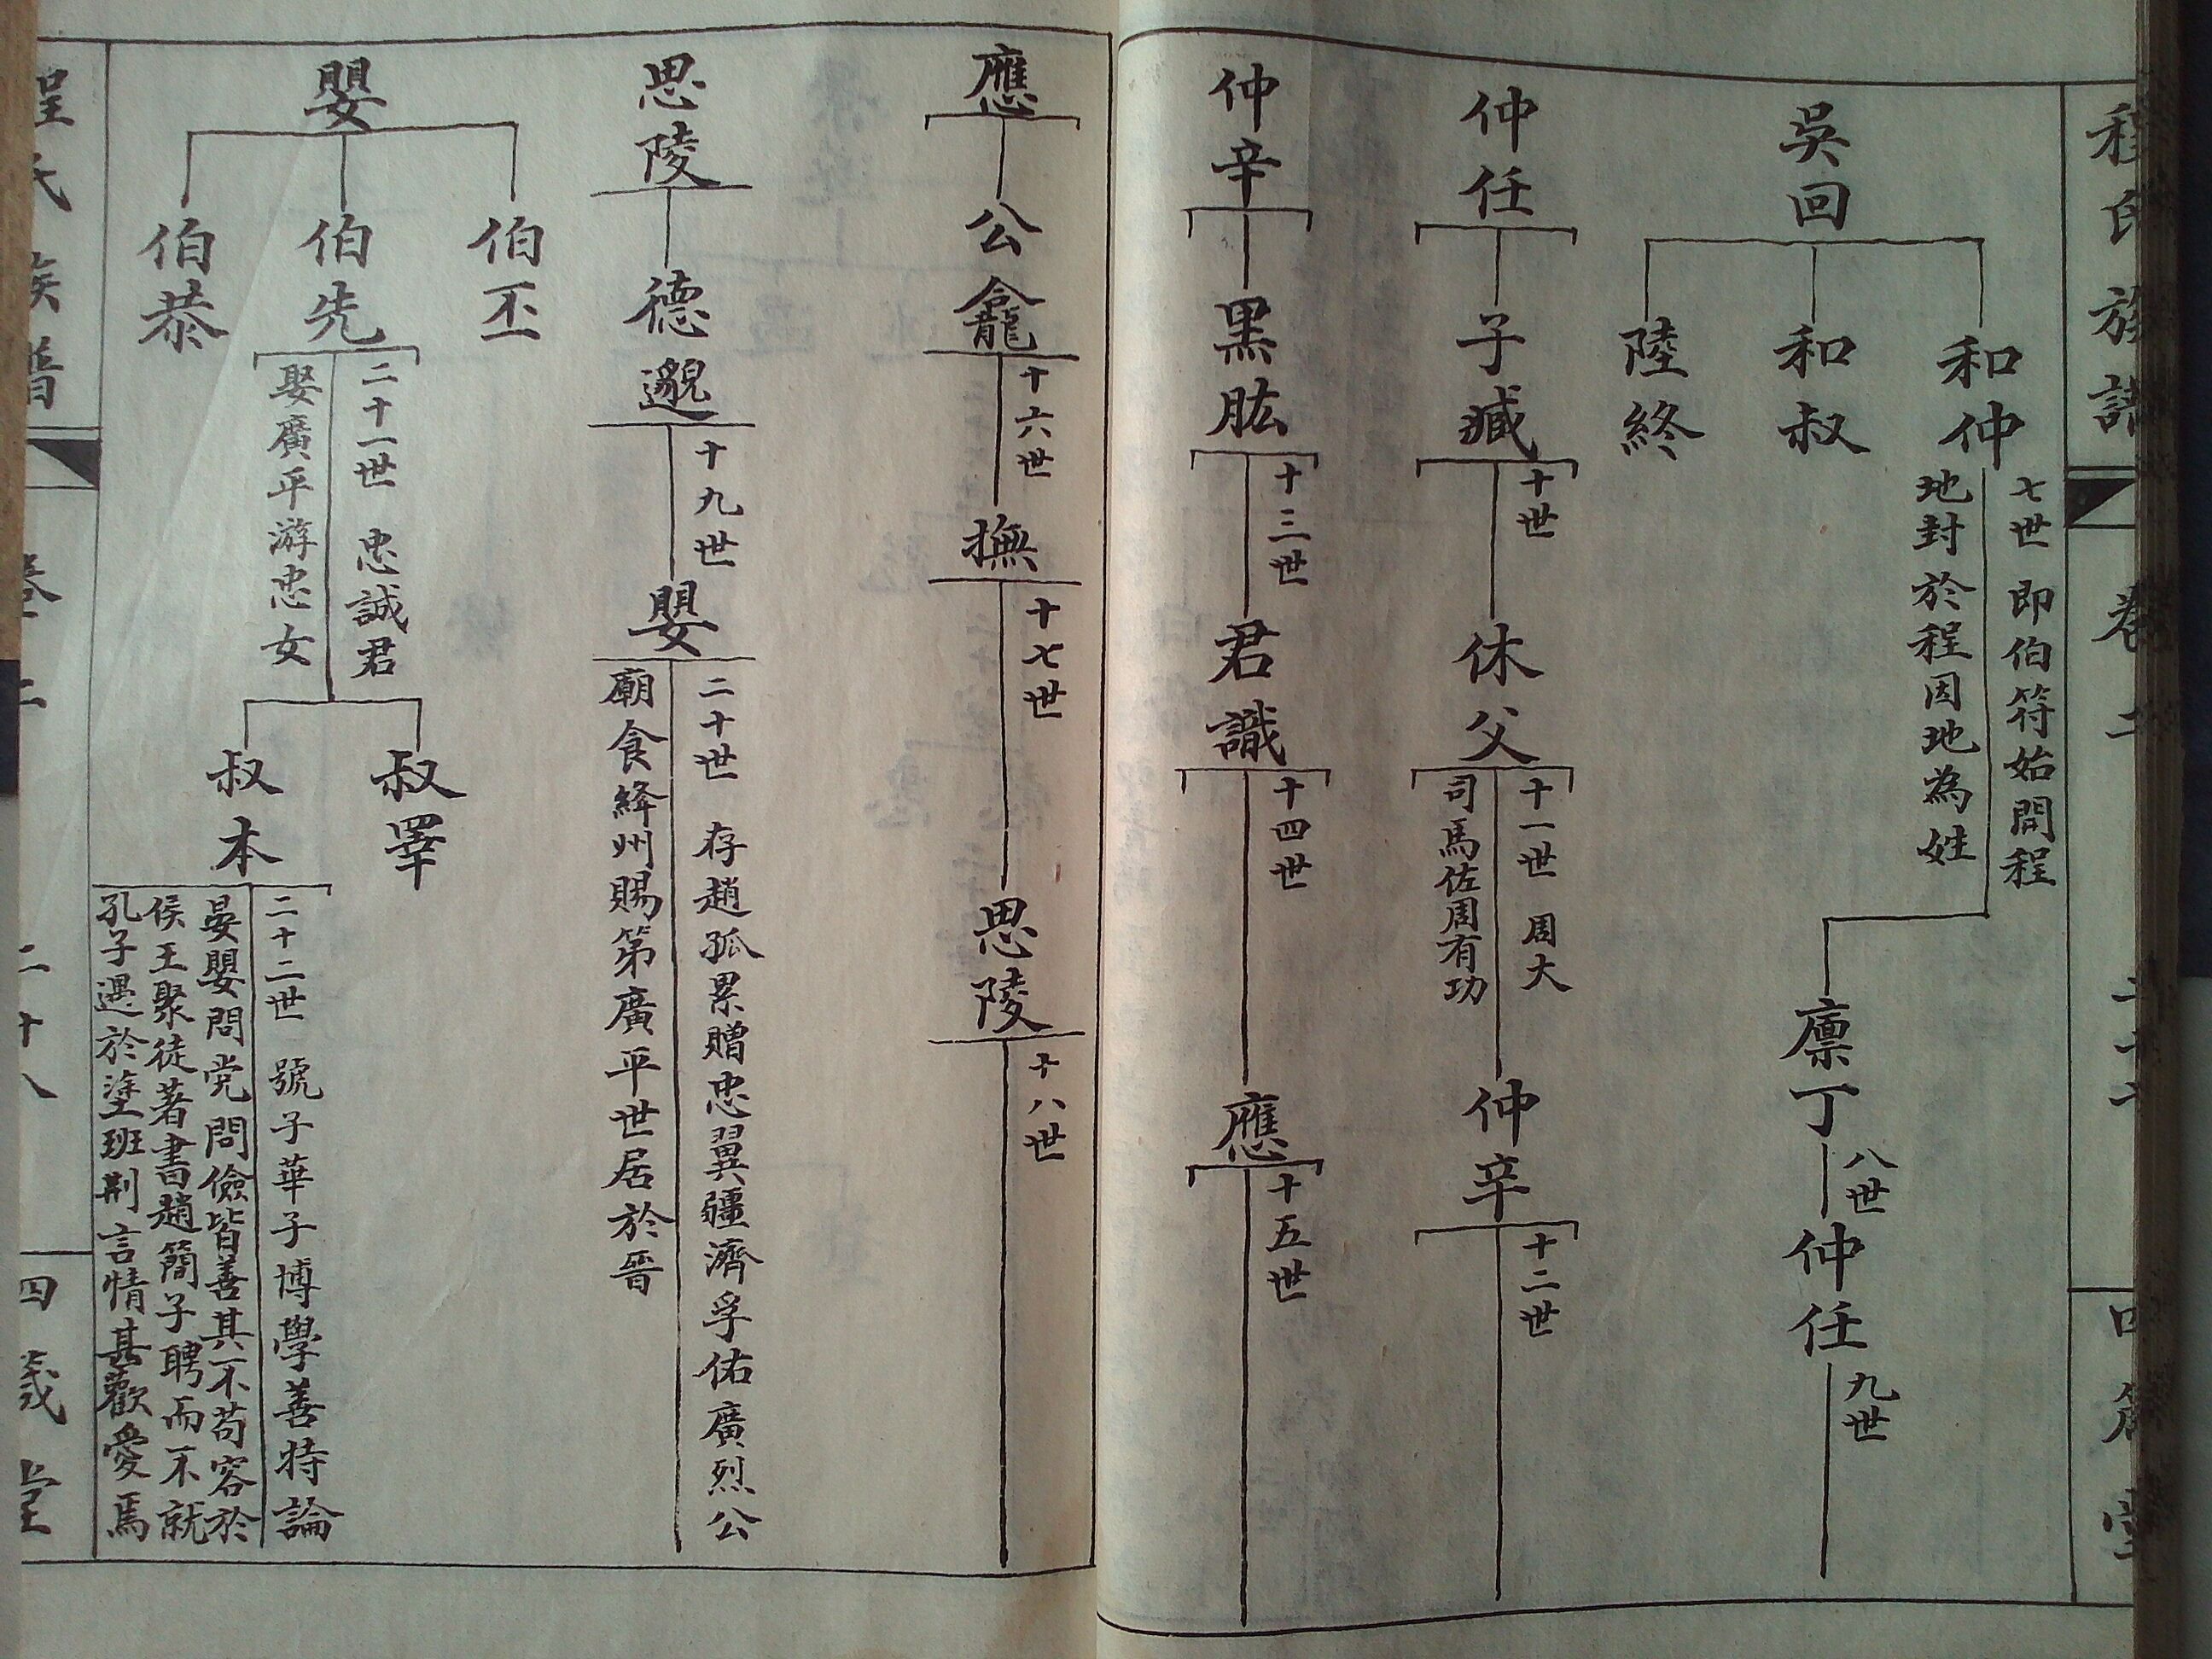 程氏族譜
卷二
吳回
和仲
七世 即伯符始閒程
地封於程因地為姓
和叔
陸終
廪丁
八世
仲任
九世
仲任
子臧
十世
休父
十一世 周大
司馬佐周有功
仲辛
十二世
仲辛
黑肱
十三世
君識
十四世
應
十五世
應
公龕
十六世
撫
十七世
思陵
十八世
思陵
德邈
十九世
嬰
二十世 存趙孤累贈忠翼疆濟孚佑廣烈公
廟食絳州賜第廣平世居於晉
嬰
伯丕
伯先
二十一世 忠誠君
娶廣平游忠女
伯恭
叔睪
叔本
二十二世 號子華子博學善持論
晏嬰問党問儉皆善其不苟容於
侯王聚徒著書趙簡子聘而不就
孔子遇於塗班荆言情甚歡愛焉
程氏族譜
卷二
二十八
四箴堂